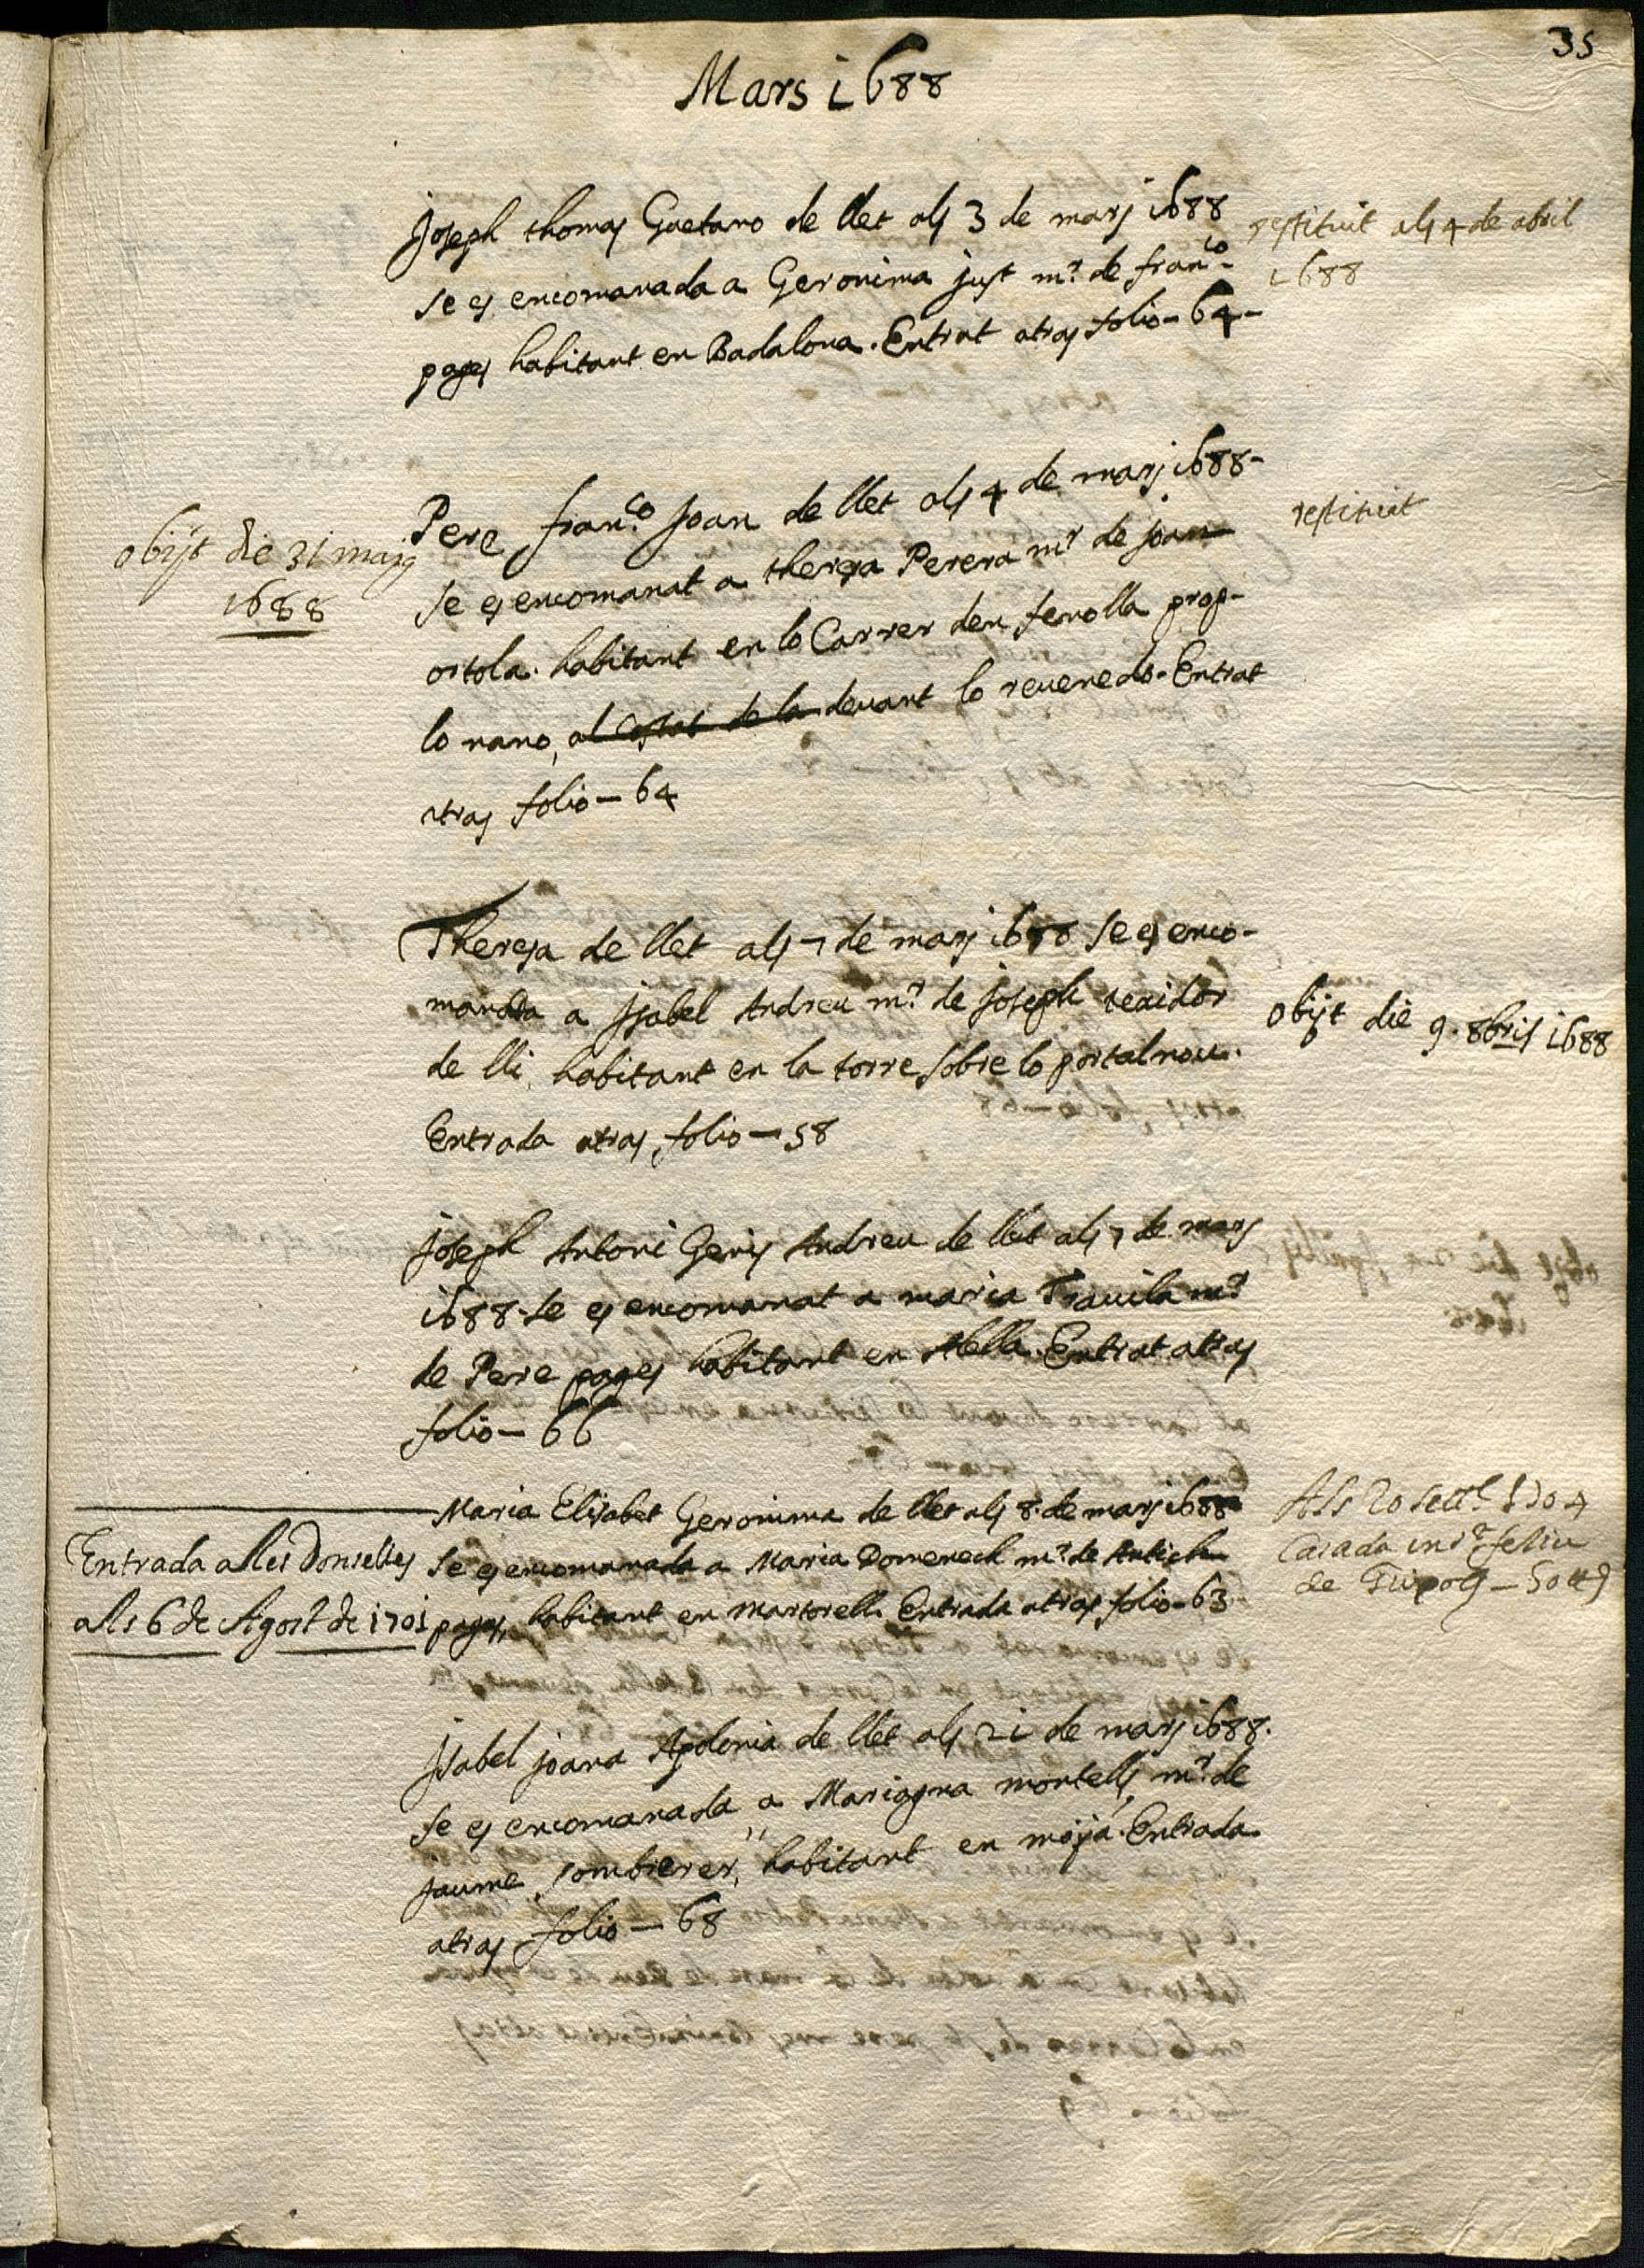 35
Mars 1688
Joseph thomas Gaetano de llet als 3 de mars 1688
se es encomanada a Geronima just mr. de franco
pages habitant en Badalona. Entrat atras folio - 64 -
restituit als 4 de abril
1688
Pere franco Joan de llet als 4 de mars 1688 -
se es encomanat a theresa Perera mr de joan
ortola. habitant en lo Carrer den fenolla prop-
lo nano, al costat de la devant lo revenedo. Entrat
atras folio - 64
obijt die 31 maig
1688
restituit
Theresa de llet als 7 de mars 1688 se es enco-
manada a Isabel Andreu mr. de joseph texidor
de lli, habitant en la torre sobre lo portalnou.
Entrada atras folio - 58
obijt die 9. 8bris 1688
Joseph Antoni Genis Andreu de llet als 7 de mars
1688 - se es encomanat a maria mr
de Pere pages habitant en Abella. Entrat atras
folio - 66
Maria Elisabet Geronima de llet als 8. de mars 1688
se es encomanada a Maria Domenech mr. de Antich
pages, habitant en martorell. Entrada atras folio - 63
Entrada a les Donselles
als 6 de Agost de 1701
Als 20 1704
Casada feliu
de
Isabel joana Apolonia de llet als 21 de mars 1688.
se es encomanada a Mariagna montells mr. de
jaume sombrerer, habitant en moyá. Entrada
atras folio - 68